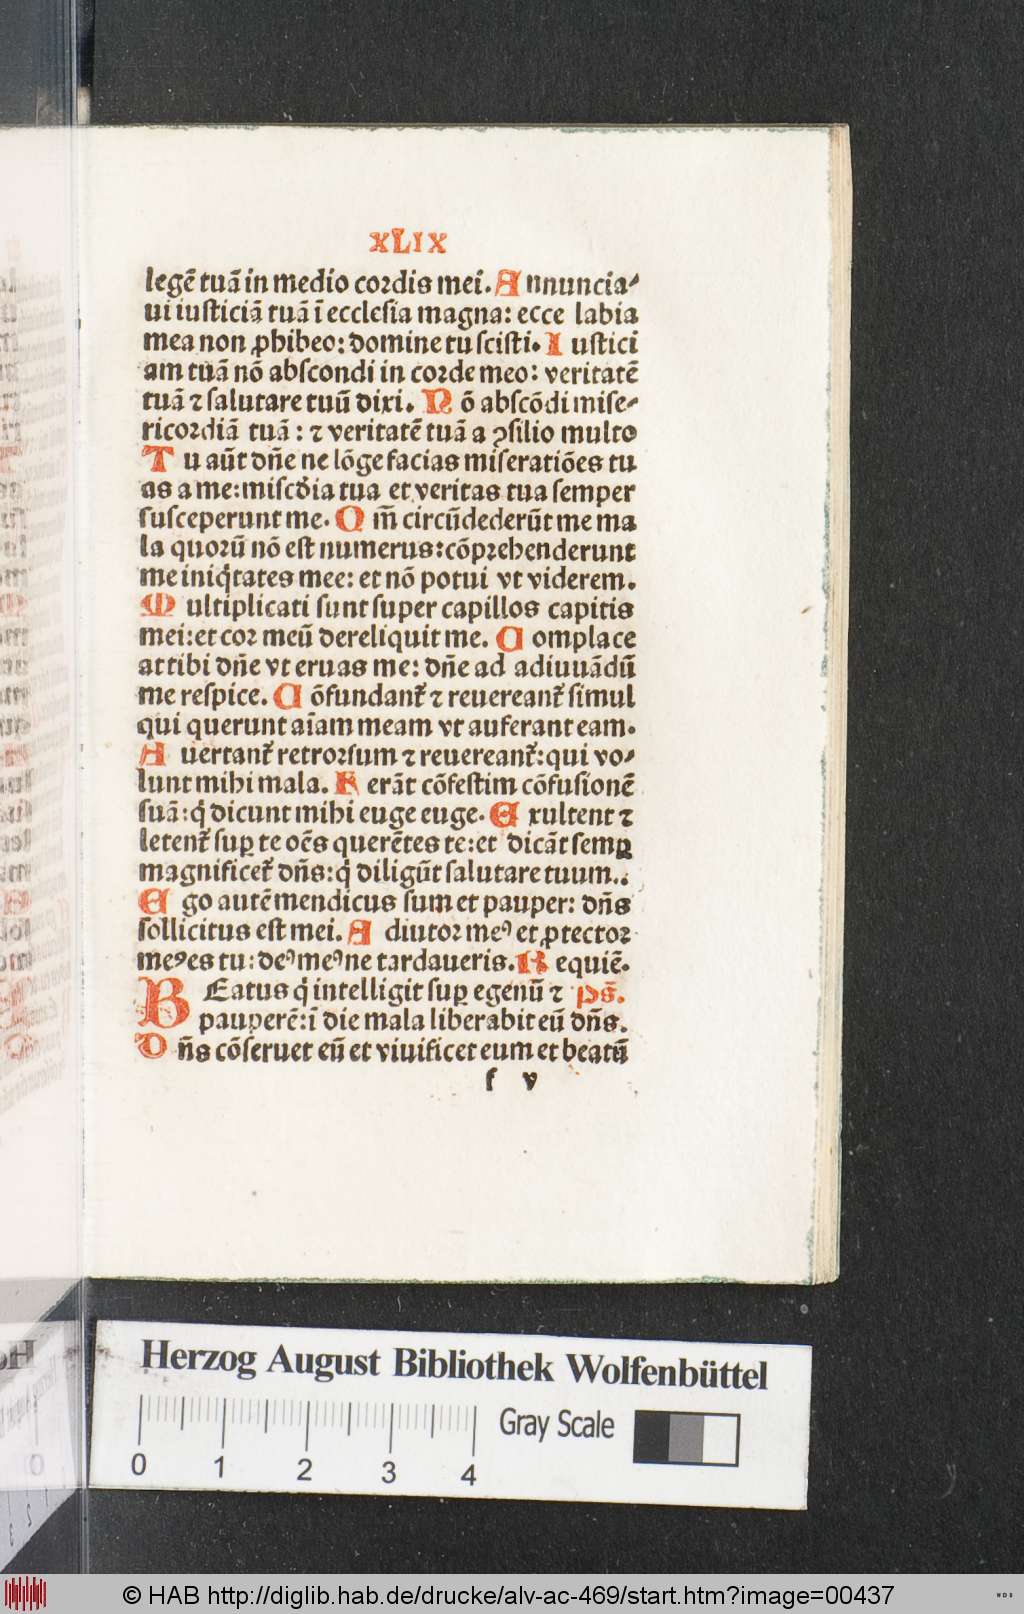 XLIX
legē tuā in medio cordis mei. Annuncia⸗
ui iusticiā tuā ī ecclesia magna: ecce labia
mea non ꝓhibeo: domine tu scisti. Iustici
am tuā nō abscondi in corde meo: veritatē
tuā ⁊ salutare tuū dixi. Nō abscōdi mise⸗
ricordiā tuā: ⁊ veritatē tuā a ꝯsilio multo
Tu aūt dn̄e ne lōge facias miseratiōes tu
as a me: miscd̄ia tua et veritas tua semper
susceperunt me. Qm̄ circūdederūt me ma
la quorū nō est numerus: cōprehenderunt
me iniq̄tates mee: et nō potui vt viderem.
Multiplicati sunt super capillos capitis
mei: et cor meū dereliquit me. Complace
at tibi dn̄e vt eruas me: dn̄e ad adiuuādū
me respice. Cōfundant᷑ ⁊ reuereant᷑ simul
qui querunt aīam meam vt auferant eam.
Auertant᷑ retrorsum ⁊ reuereant᷑: qui vo⸗
lunt mihi mala. Ferāt cōfestim cōfusionē
suā: q̄ dicunt mihi euge euge. Exultent ⁊
letent᷑ suꝑ te oēs querētes te: et dicāt semꝑ
magnificet᷑ dn̄s: q̄ diligūt salutare tuum.
Ego autē mendicus sum et pauper: dn̄s
sollicitus est mei. Adiutor meꝰ et ꝓtector
meꝰ es tu: deꝰ meꝰ ne tardaueris. Requiē.
BEatus q̄ intelligit suꝑ egenū ⁊ ps̄.
pauperē: ī die mala liberabit eū dn̄s.
Dn̄s cōseruet eū et viuificet eum et beatū
f v
Herzog August Bibliothek Wolfenbüttel
0 1 2 3 4 Gray Scale
© HAB http://diglib.hab.de/drucke/alv-ac-469/start.htm?image=00437